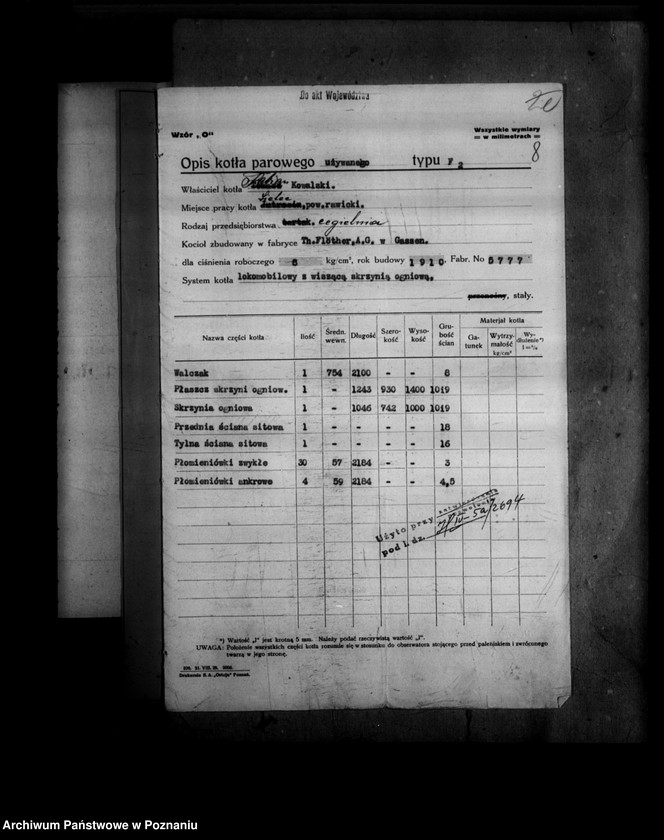 Do akt Województwa
Wzór „O"
Wszystkie wymiary
= w milimetrach =
8
Opis kotła parowego używanego typu F 2
Właściciel kotła Kowalski.
Miejsce pracy kotła Jutrosin, pow.rawicki.
Rodzaj przedsiębiorstwa tartak. cegielnia
Kocioł zbudowany w fabryce Th.Flöther,A.G. w Gassen.
dla ciśnienia roboczego 8 kg/cm², rok budowy 1910 Fabr. No 5777
System kotła lokomobilowy z wiszącą skrzynią ogniową.
przenośny, stały.
Nazwa części kotła Ilość Średn. wewn. Długość Szerokość Wysokość Grubość ścian Materjał kotła
Gatunek Wytrzymałość kg/cm² Wydłużenie*) l=%
Walczak 1 754 2100 - - 8
Płaszcz skrzyni ogniow. 1 - 1243 930 1400 1019
Skrzynia ogniowa 1 - 1046 742 1000 1019
Przednia ściana sitowa 1 - - - - 18
Tylna ściana sitowa 1 - - - - 16
Płomieniówki zwykłe 30 57 2184 - - 3
Płomieniówki ankrowe 4 59 2184 - - 4,5
Użyto przy
pod l. dz.
*) Wartość „l" jest krotną 5 mm. Należy podać rzeczywistą wartość „l".
UWAGA: Położenie wszystkich części kotła rozumie się w stosunku do obserwatora stojącego przed paleniskiem i zwróconego
twarzą w jego stronę.
Drukarnia S.A. „Ostoja" Poznań.
Archiwum Państwowe w Poznaniu